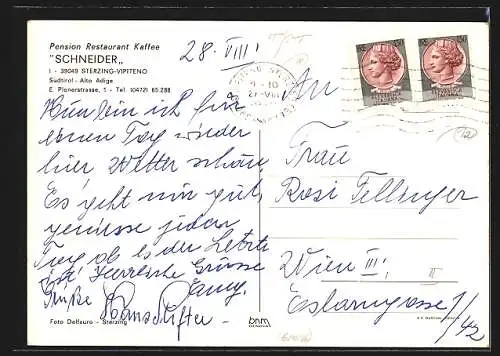 Pension Restaurant Kaffee
"SCHNEIDER„
I - 39049 STERZING-VIPITENO
Südtirol - Alto Adige
E. Planerstrasse, 1 - Tel. (0472) 65 288
28. VIII.
Nun bin ich für
einen Tag wieder
hier Wetter schön.
Es geht mir gut,
geniesse jeden
Tag ob es der Letzte
ist Herzliche Grüsse
Grüße
An
Frau
Rosi Fellinger
Wien III.
Eslarngasse
Foto Delfauro - Sterzing